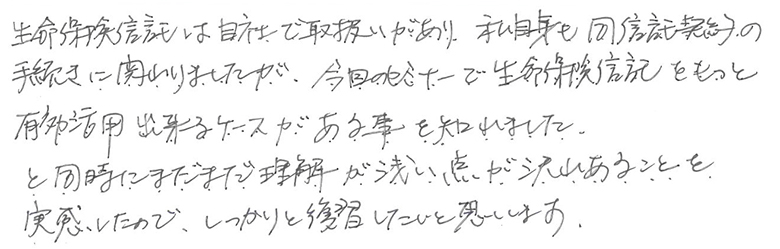 生命保険信託は自社で取扱いがあり、私自身も同信託契約の
手続きに関わりましたが、今回のセミナーで生命保険信託をもっと
有効活用出来るケースがある事を知れました。
と同時にまだまだ理解が浅い点が沢山あることを
実感したので、しっかりと復習したいと思います。